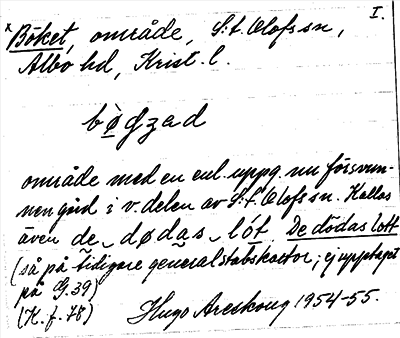 I.
x Böket, område, S:t. Olofs sn,
Albo hd, Krist. l.
bø̀gzad
område med en enl. uppg. nu försvun-
nen gård i v. delen av S:t. Olofs sn. Kallas
även de dødas lót De dödas lott
(så på tidigare generalstabskartor; ej upptaget
på G. 39)
(K. f. 78) Hugo Areskoug 1954-55.